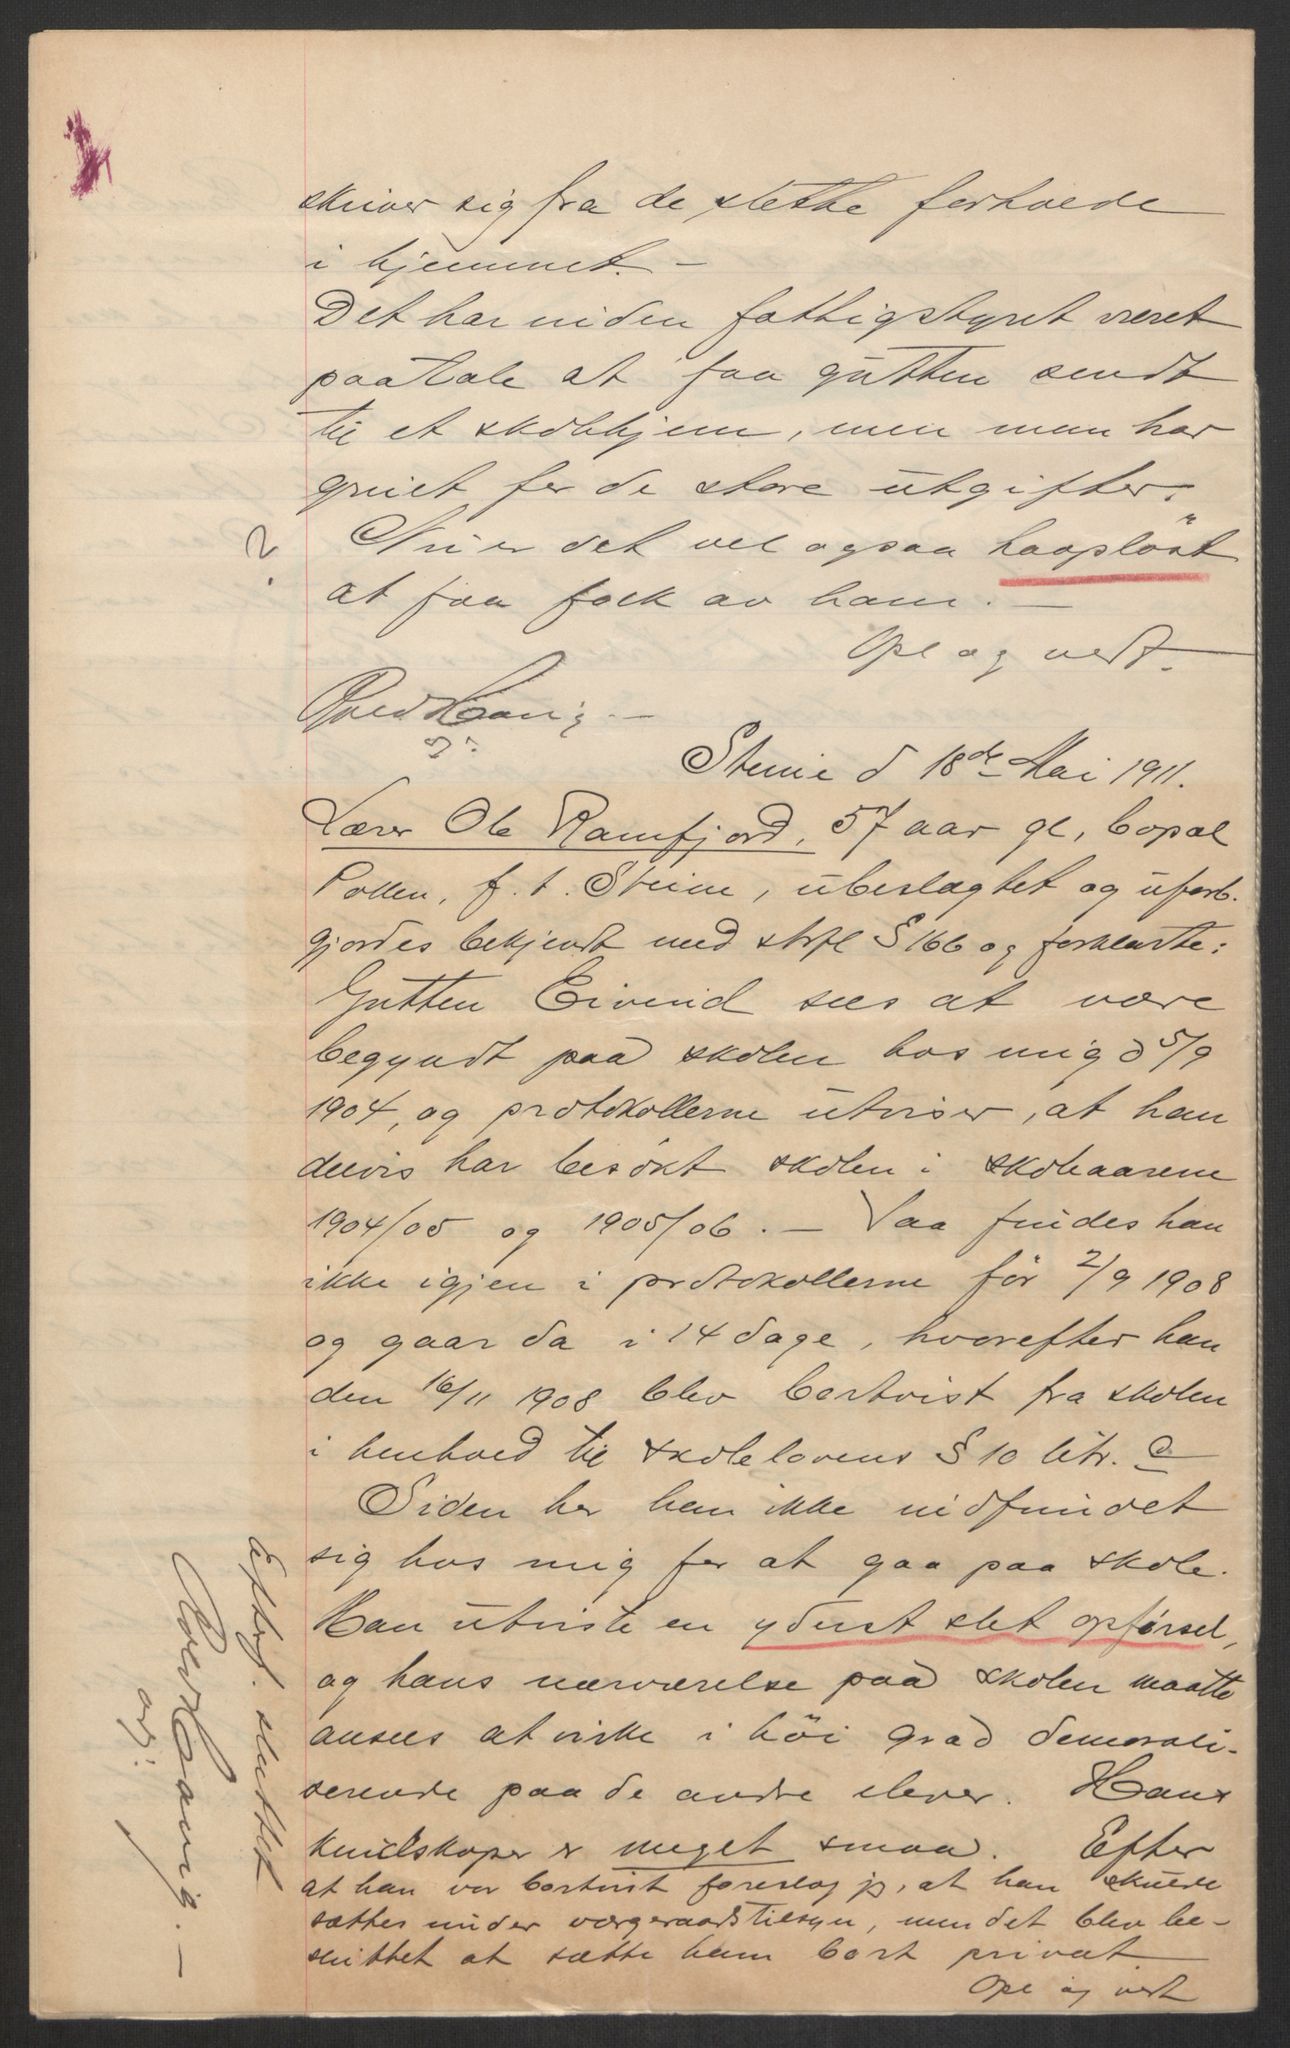 skriver sig fra de slette forholde
i hjemmet. —
Det har inden fattigstyret været
paatale at faa gutten sendt
til et skolehjem, men man har
gruet for de store utgifter.
2.
Nu er det vel ogsaa haapløst
at faa folk av ham. —
Opl og vedt.
Steine d 18de Mai 1911.
Lærer Ole Ramfjord, 57 aar gl, bopæl
Pollen, f. t. Steine, ubeslægtet og uforb.
gjordes bekjendt med strfl § 166 og forklarte:
Gutten Eivind sees at være
begyndt paa skolen hos mig d 5/9
1904, og protokollerne utviser, at han
delvis har besøkt skolen i skoleaarene
1904/05 og 1905/06. — Saa findes han
ikke igjen i protokollerne før 2/9 1908
og gaar da i 14 dage, hvorefter han
den 16/11 1908 blev bortvist fra skolen
i henhold til skolelovens § 10 litr. c
Siden har han ikke indfundet
sig hos mig for at gaa paa skole.
Han utviste en yderst slet opførsel,
og hans nærværelse paa skolen maatte
ansees at virke i høi grad demorali-
serende paa de andre elever. Hans
kundskaper er meget smaa. Efter
at han var bortvist foreslog jeg, at han skulde
sættes under værgeraadstilsyn, men det blev be-
sluttet at sætte ham bort privat
Opl og vedt
Efterf. sluttet